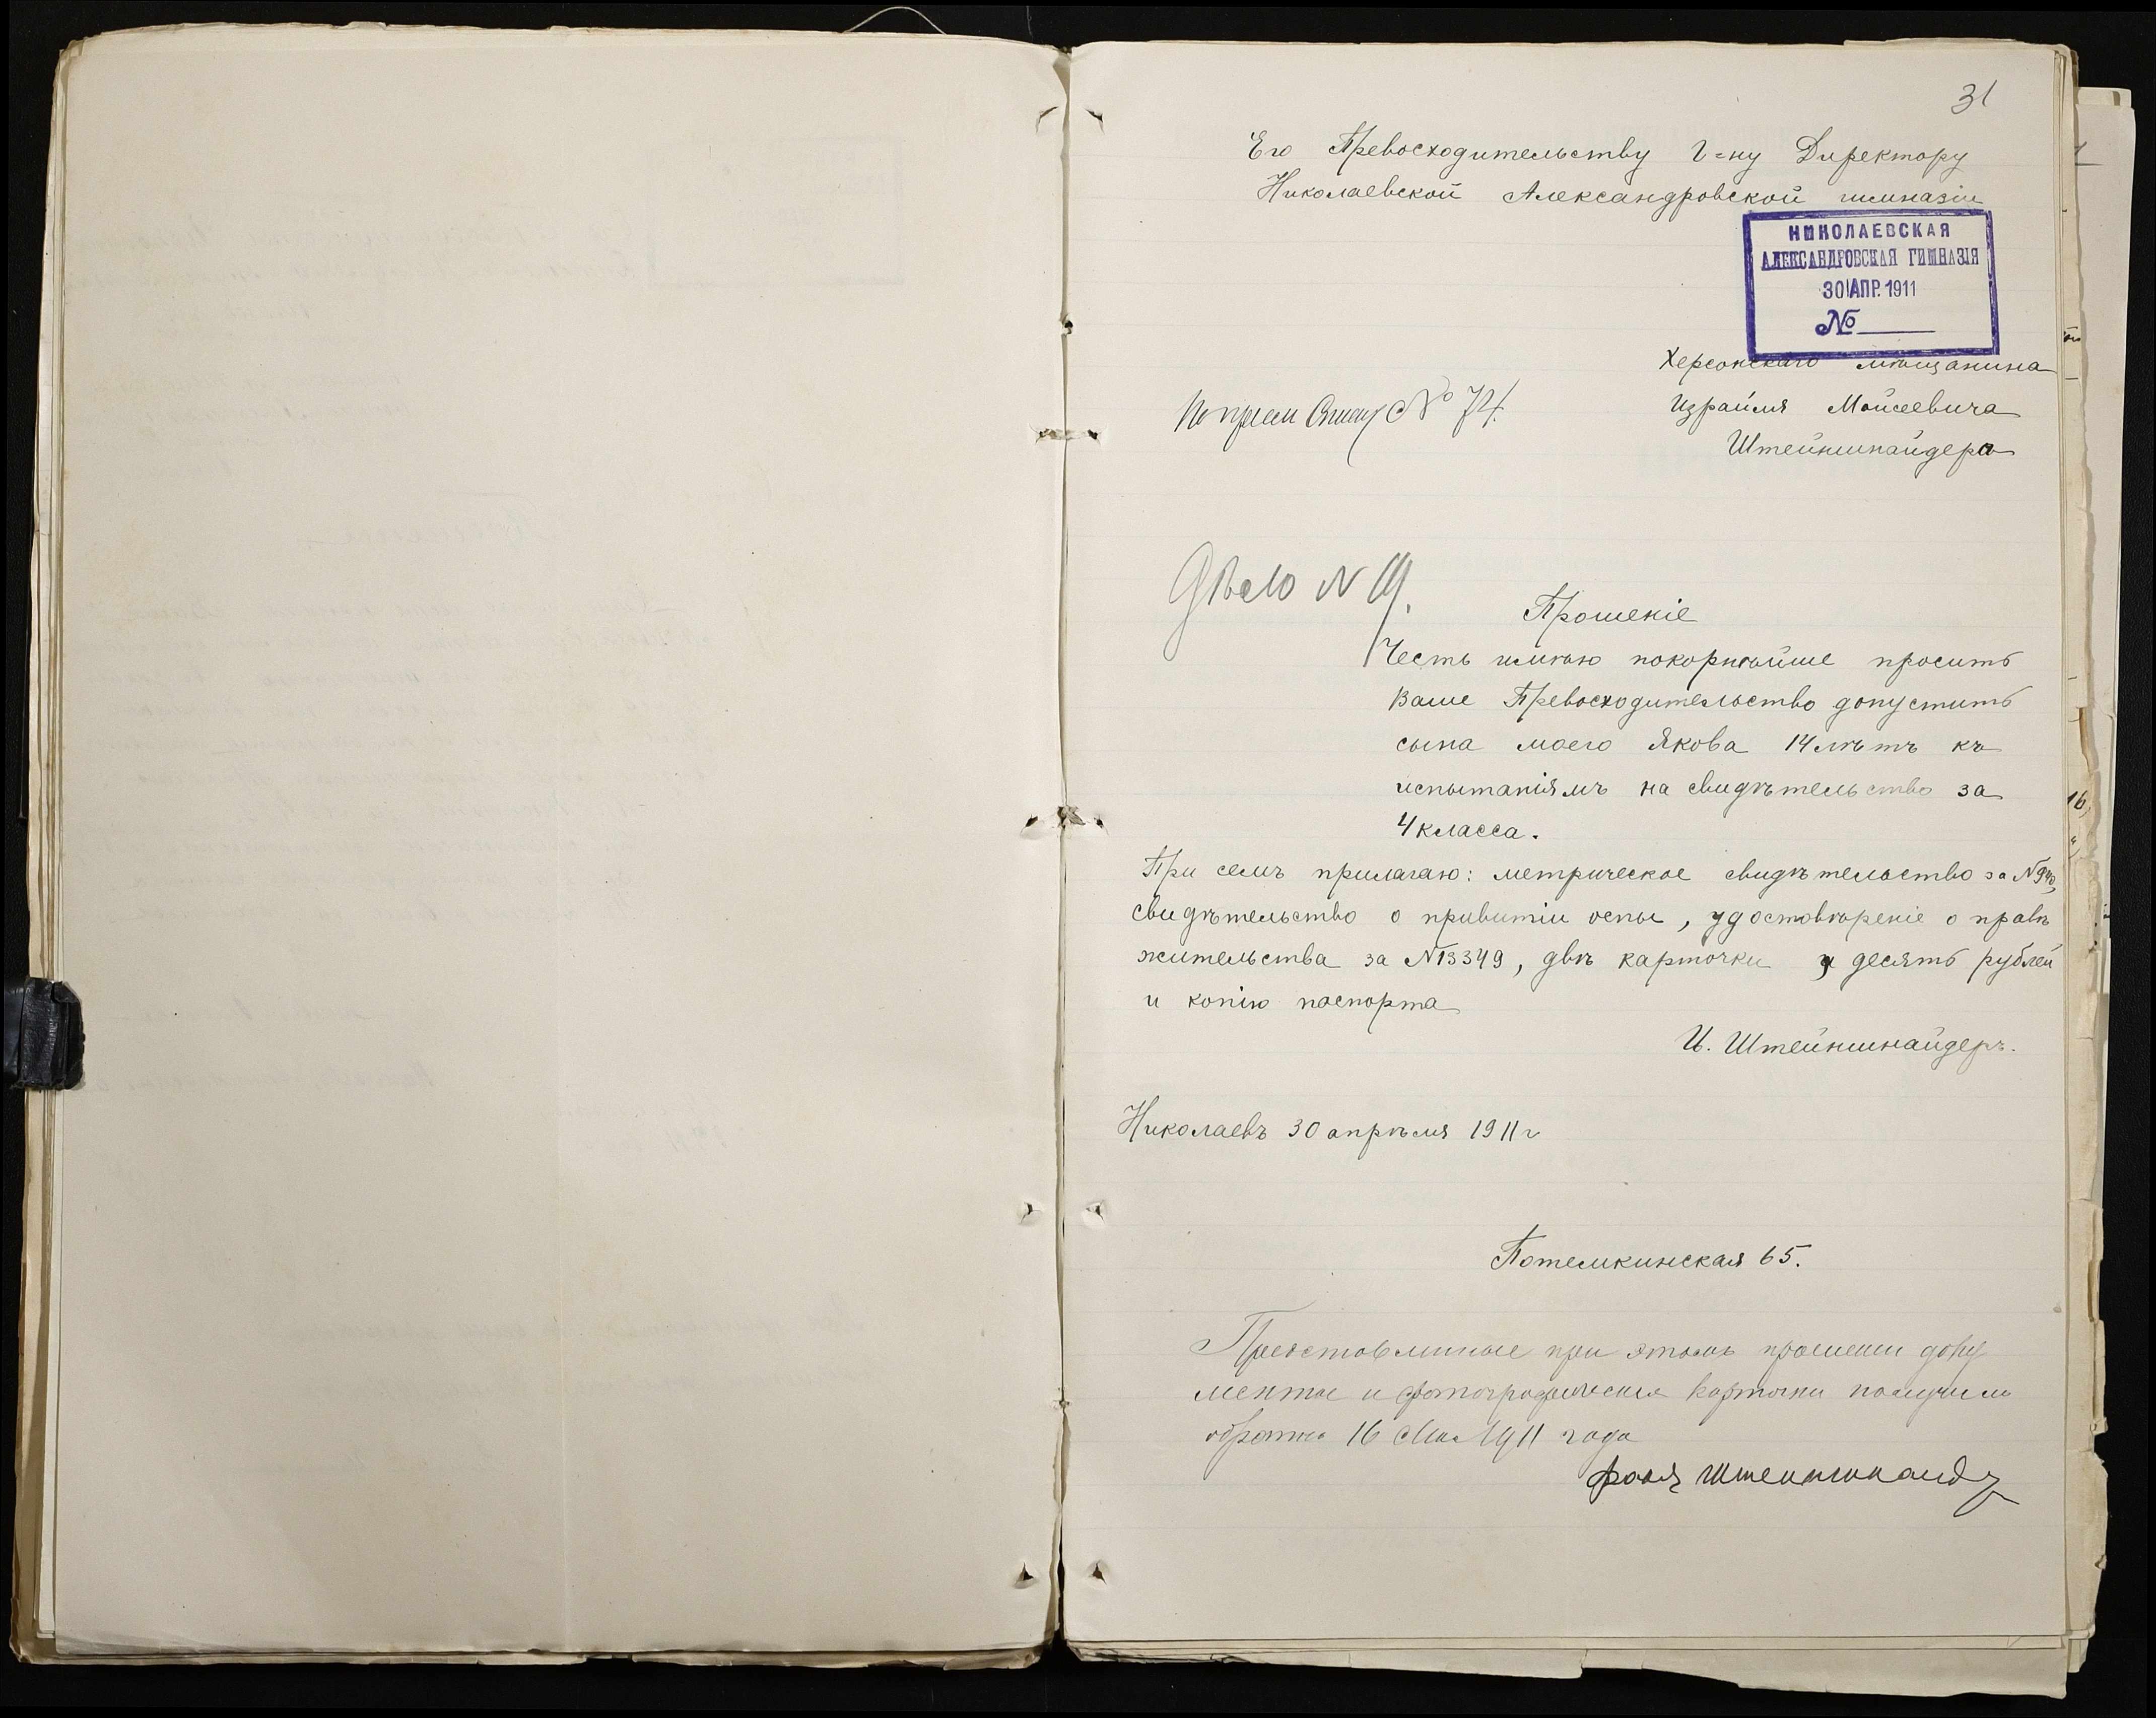 31
Его Превосходительству Г-ну Директору
Николаевской Александровской гимназіи
НИКОЛАЕВСКАЯ
АЛЕКСАНДРОВСКАЯ ГИМНАЗІЯ
30 АПР. 1911
№
Херсонскаго мѣщанина
Израйля Мойсеевича
Штейншнайдера
№ 74.
Дѣло N 19.
Прошеніе
Честь имѣю покорнѣйше просить
Ваше Превосходительство допустить
сына моего Якова 14 лѣтъ къ
испытаніямъ на свидѣтельство за
4 класса.
При семъ прилагаю: метрическое свидѣтельство за N 940,
свидѣтельство о привитіи оспы, удостовѣреніе о правѣ
жительства за N 13349, двѣ карточки и десять рублей
и копію паспорта
И. Штейншнайдеръ.
Николаевъ 30 апрѣля 1911 г
Потемкинская 65.
при этомъ прошеніи доку
менты и фотографическія карточки получилъ
обратно 16 Мая 1911 года